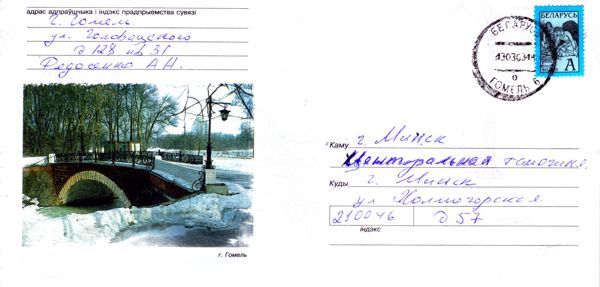 адрас адпраўшчыка і індэкс прадпрыемства сувязі
г. Гомель
ул. Головацкого
д 128 кв 31
Федосенко А А.
БЕЛАРУСЬ
ГОМЕЛЬ 6
БЕЛАРУСЬ
А
Каму г. Минск
Центральная таможня.
Куды г. Минск
ул Холмогорская.
210046 д 57
індэкс
г. Гомель